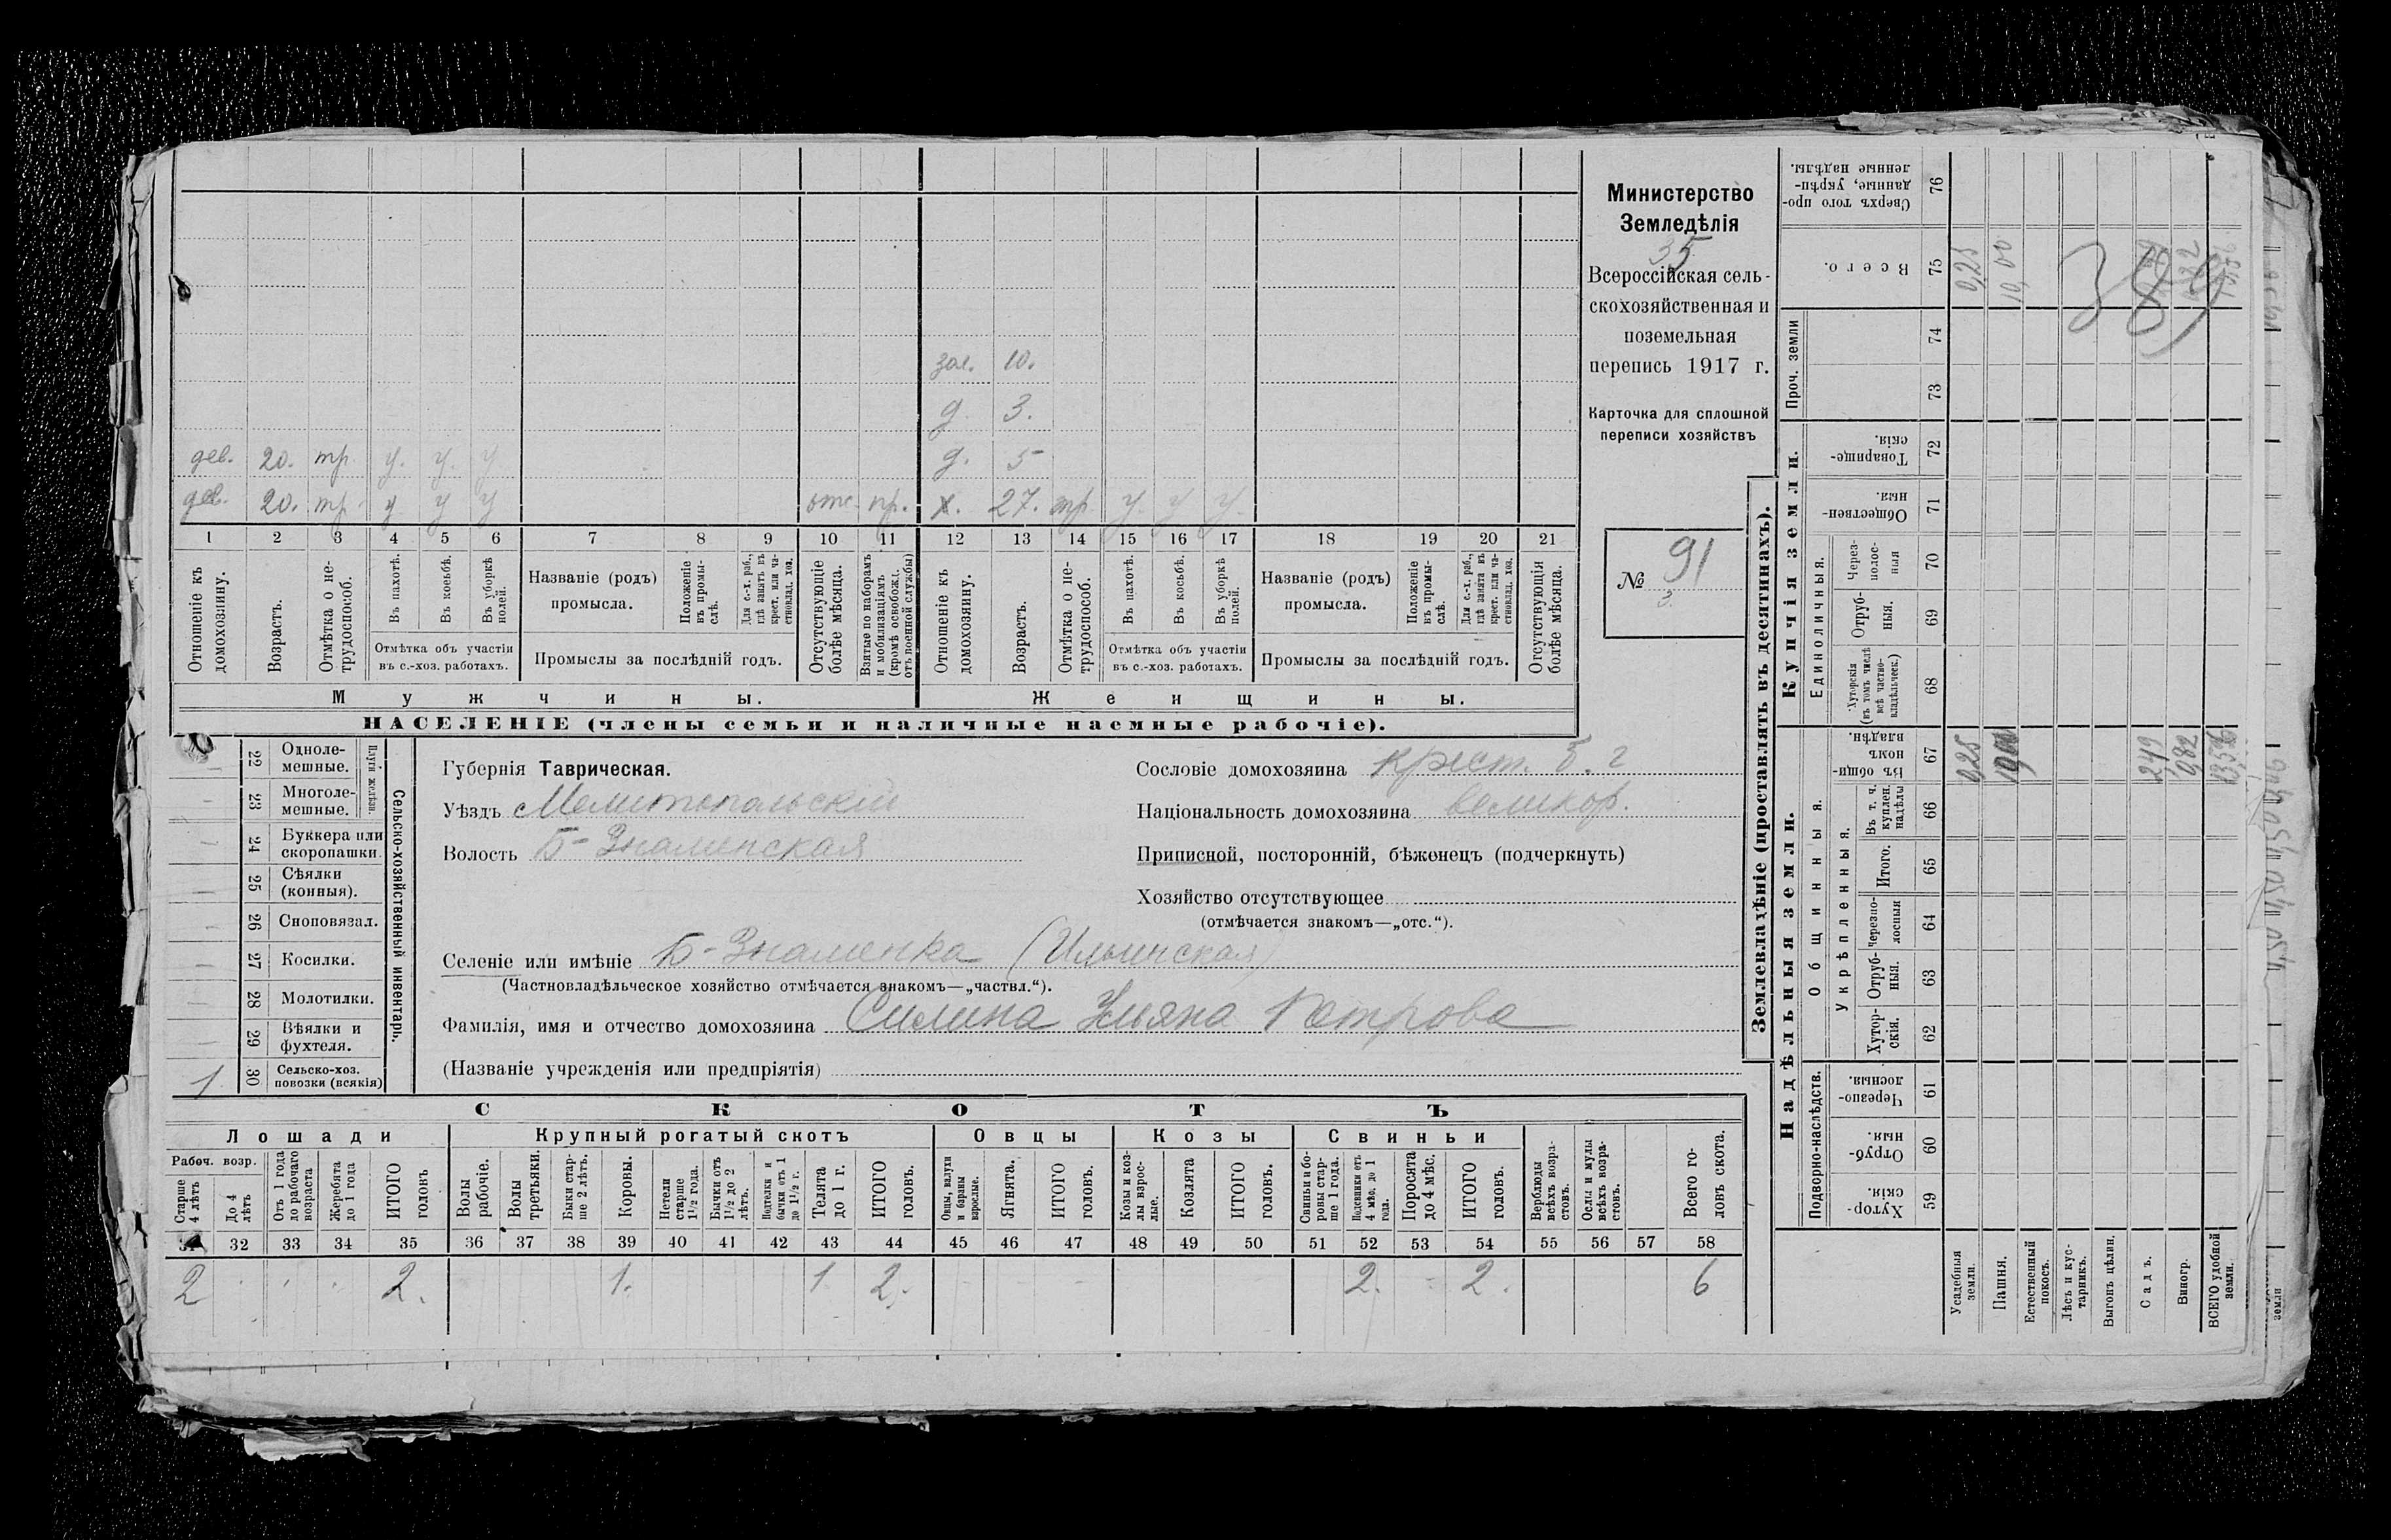 Министерство
Земледѣлія
35
Всероссійская сель-
скохозяйственная и
поземельная
перепись 1917 г.
Карточка для сплошной
переписи хозяйствъ
№ 91
3.
зол. 10.
д. 3.
дев. 20. тр. у. у. у д. 5
дев. 20. тр. у у у отс. пр. х. 27. тр. у. у у.
1 2 3 4 5 6 7 8 9 10 11 12 13 14 15 16 17 18 19 20 21
Отношеніе къ домохозяину.
Возрастъ.
Отмѣтка о не-трудоспособ.
Въ пахотѣ.
Въ косьбѣ.
Въ уборкѣ полей.
Отмѣтка объ участіи въ с.-хоз. работахъ.
Названіе (родъ) промысла.
Положеніе въ промы-слѣ.
Для с.-х. раб., гдѣ занятъ въ крест. или ча-стновлад. хоз.
Промыслы за послѣдній годъ.
Отсутствующіе болѣе мѣсяца.
Взятые по наборамъ и мобилизаціямъ (кромѣ освобожд. отъ военной службы)
Отношеніе къ домохозяину.
Возрастъ.
Отмѣтка о не-трудоспособ.
Въ пахотѣ.
Въ косьбѣ.
Въ уборкѣ полей.
Отмѣтка объ участіи въ с.-хоз. работахъ.
Названіе (родъ) промысла.
Положеніе въ промы-слѣ.
Для с.-х. раб., гдѣ занята въ крест. или ча-стновлад. хоз.
Промыслы за послѣдній годъ.
Отсутствующія болѣе мѣсяца.
Мужчины.
Женщины.
НАСЕЛЕНІЕ (члены семьи и наличные наемные рабочіе).
22 Одноле-мешные.
23 Многоле-мешные.
Плуги желѣзн.
24 Буккера или скоропашки.
25 Сѣялки (конныя).
26 Сноповязал.
27 Косилки.
28 Молотилки.
29 Вѣялки и фухтеля.
1 30 Сельско-хоз. повозки (всякія)
Сельско-хозяйственный инвентарь.
Губернія Таврическая.
Уѣздъ Мелитопольскій
Волость Б-Знаменская
Сословіе домохозяина крест. б. г
Національность домохозяина великор.
Приписной, посторонній, бѣженецъ (подчеркнуть)
Хозяйство отсутствующее
(отмѣчается знакомъ—„отс.“).
Селеніе или имѣніе Б-Знаменка (Ильинская)
(Частновладѣльческое хозяйство отмѣчается знакомъ—„частвл.“).
Фамилія, имя и отчество домохозяина Силина Ульяна Петрова
(Названіе учрежденія или предпріятія)
СКОТЪ
Лошади
Крупный рогатый скотъ
Овцы
Козы
Свиньи
Рабоч. возр.
Старше 4 лѣтъ
До 4 лѣтъ
Отъ 1 года до рабочаго возраста
Жеребята до 1 года
ИТОГО головъ
Волы рабочіе.
Волы третьяки.
Быки стар-ше 2 лѣтъ.
Коровы.
Нетели старше 1½ года.
Бычки отъ 1½ до 2 лѣтъ.
Подтелки и бычки отъ 1 до 1½ г.
Телята до 1 г.
ИТОГО головъ.
Овцы, валухи и бараны взрослые.
Ягнята.
ИТОГО головъ.
Козы и коз-лы взрос-лые.
Козлята
ИТОГО головъ.
Свиньи и бо-ровы стар-ше 1 года.
Подсвинки отъ 4 мѣс. до 1 года.
Поросята до 4 мѣс.
ИТОГО головъ.
Верблюды всѣхъ возра-стовъ.
Ослы и мулы всѣхъ возра-стовъ.
Всего го-ловъ скота.
31 32 33 34 35 36 37 38 39 40 41 42 43 44 45 46 47 48 49 50 51 52 53 54 55 56 57 58
2 2. 1. 1 2. 2. 2. 6
Землевладѣніе (проставлять въ десятинахъ).
Надѣльныя земли.
Купчія земли.
Проч. земли
Подворно-наслѣдств.
Общинныя.
Укрѣпленныя.
Единоличныя.
Сверхъ того про-данные, укрѣп-ленные надѣлы. 76
Всего. 75
74
73
Товарище-скія. 72
Обществен-ныя. 71
Через-полос-ныя 70
Отруб-ныя. 69
Хуторскія (въ томъ числѣ всѣ частно-владѣльческ.) 68
Въ общин-номъ владѣн. 67
Въ т. ч. куплен. надѣлы 66
Итого. 65
Черезпо-лосныя 64
Отруб-ныя. 63
Хутор-скія. 62
Черезпо-лосныя. 61
Отруб-ныя. 60
Хутор-скія. 59
Усадебныя земли. 0,25 0,25
Пашня. 10,00 10,00
Естественный покосъ.
Лѣсъ и кус-тарникъ.
Выгонъ цѣлин.
Садъ. 2,49
Виногр. 0,82
ВСЕГО удобной земли. 13,56
389
земли